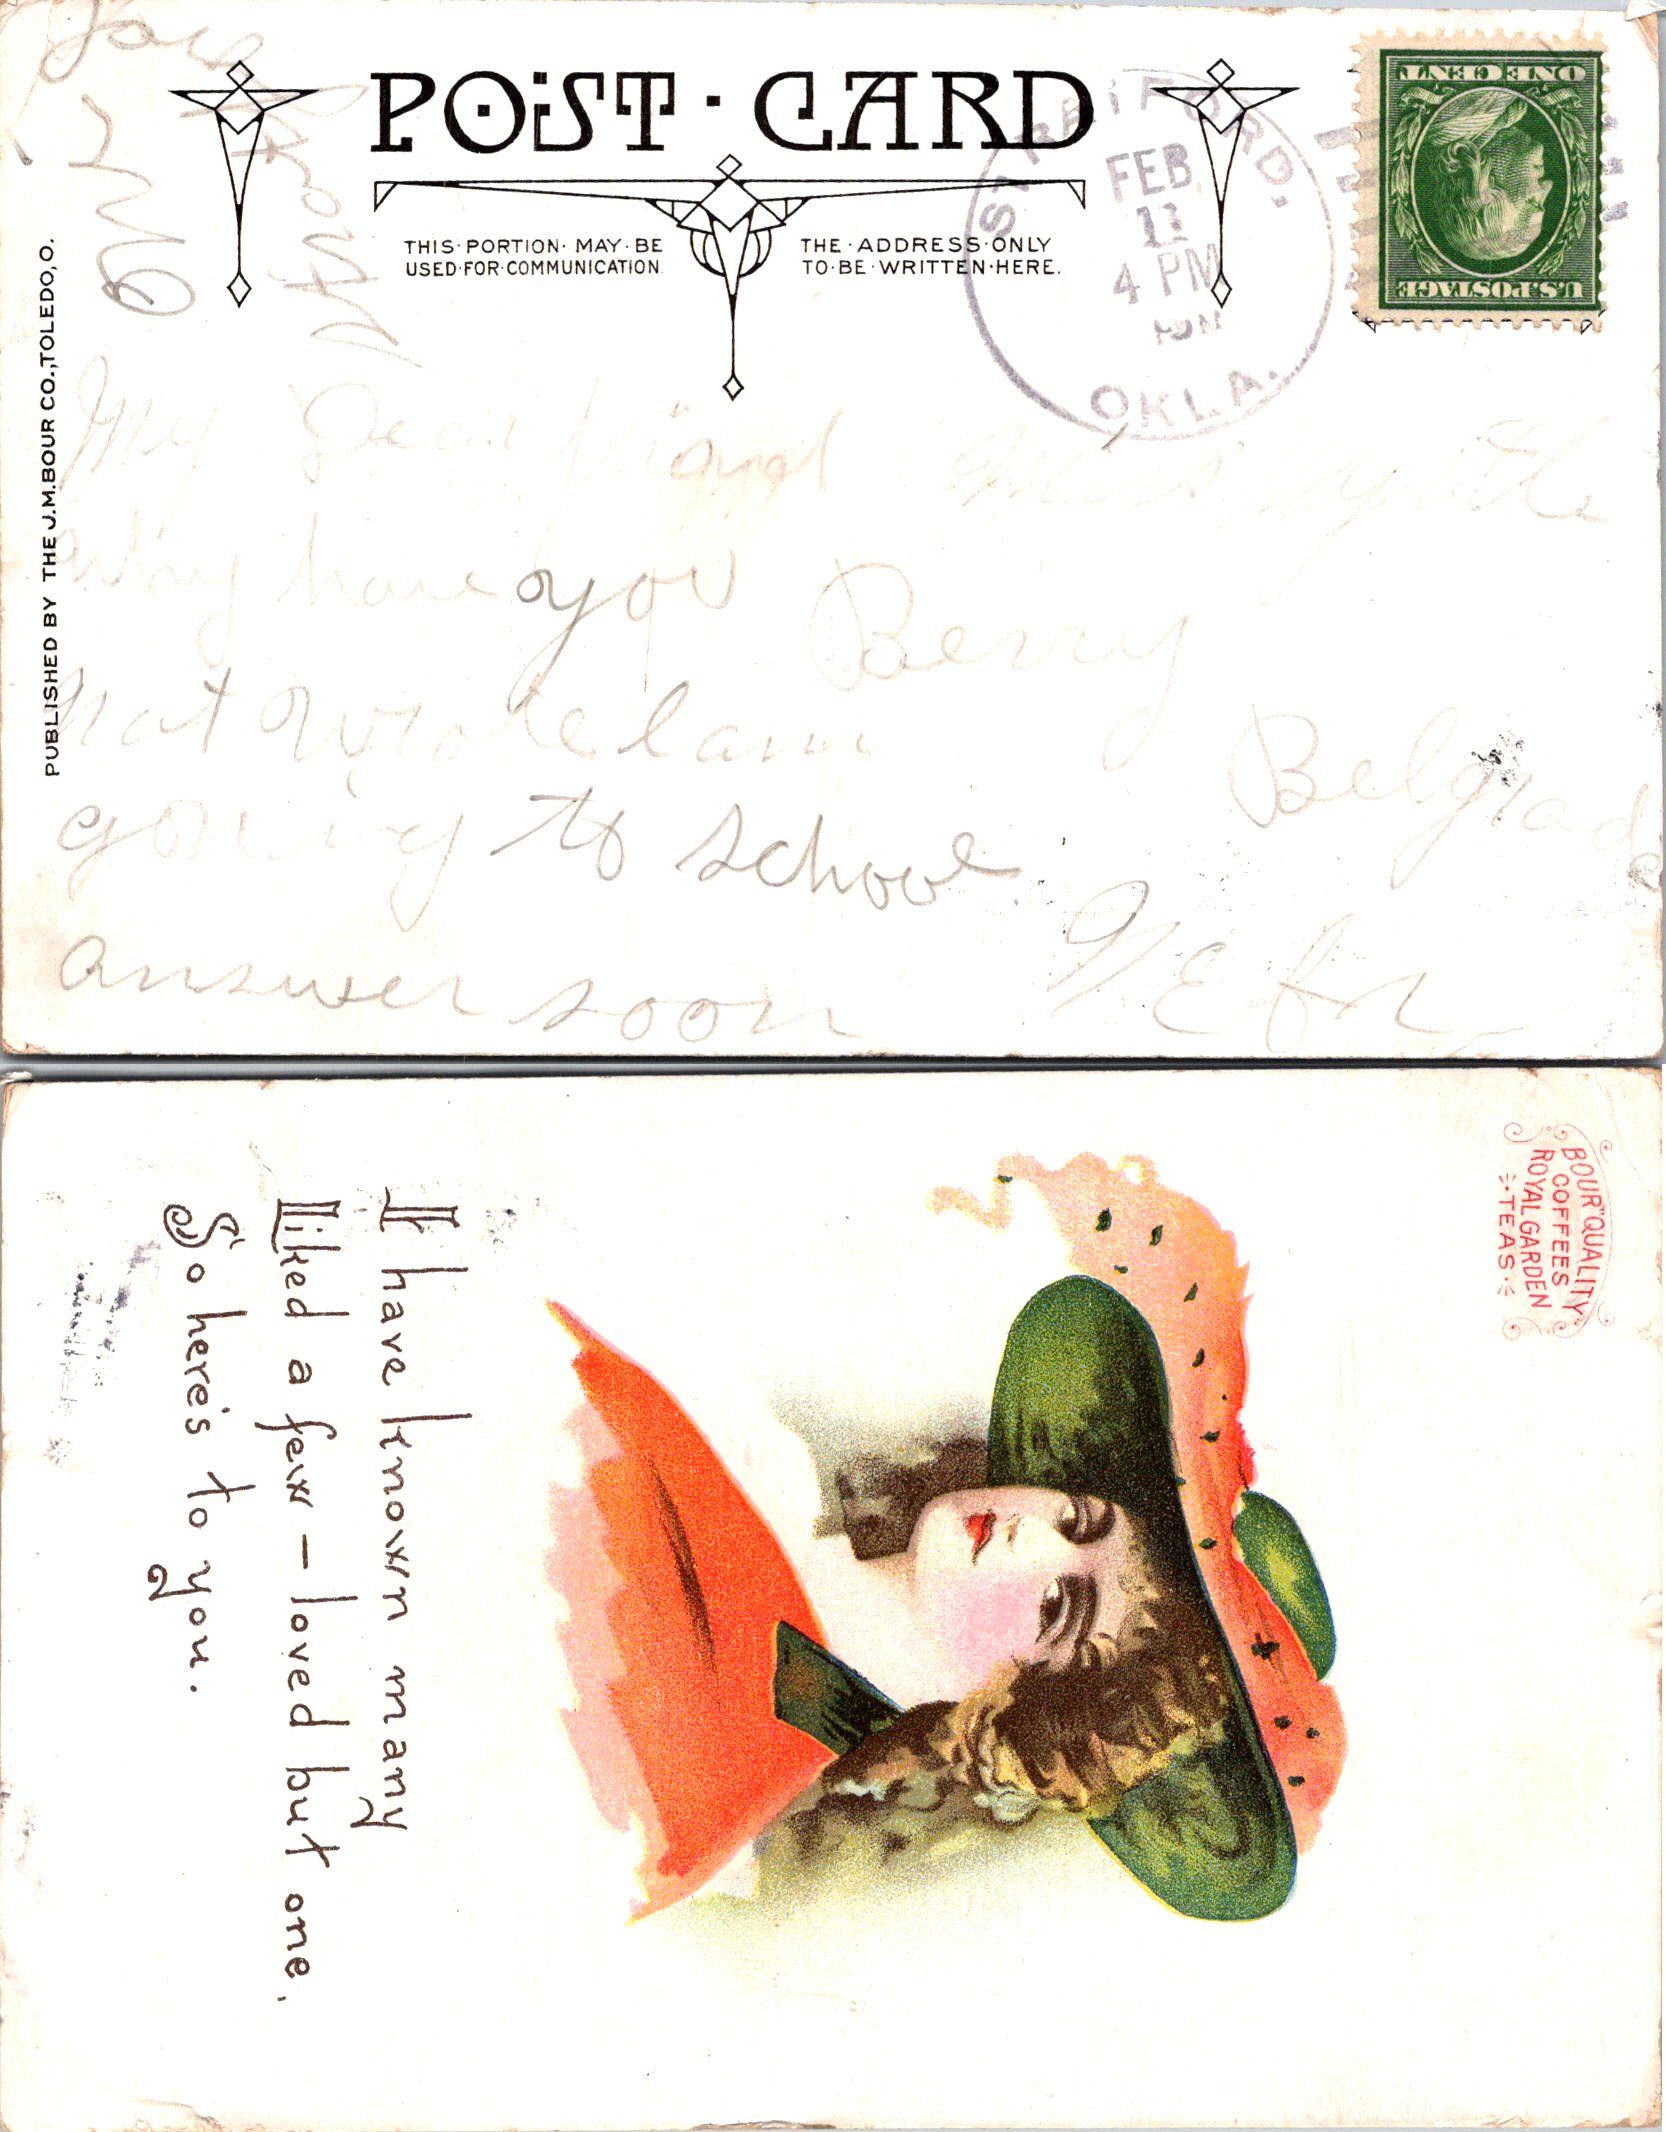 POST · CARD
THIS · PORTION · MAY · BE
USED · FOR · COMMUNICATION.
THE · ADDRESS · ONLY
TO · BE · WRITTEN · HERE.
PUBLISHED BY THE J.M. BOUR CO., TOLEDO, O.
STRATFORD.
FEB
11
4 PM
OKLA.
ONE CENT
U.S. POSTAGE
My Dear friend
why have you
not wrote I am
going to school
answer soon
Miss
Berry
Belgrade
Nebr
BOUR "QUALITY"
COFFEES
ROYAL GARDEN
TEAS
I have known many
Liked a few – loved but one.
So here's to you.